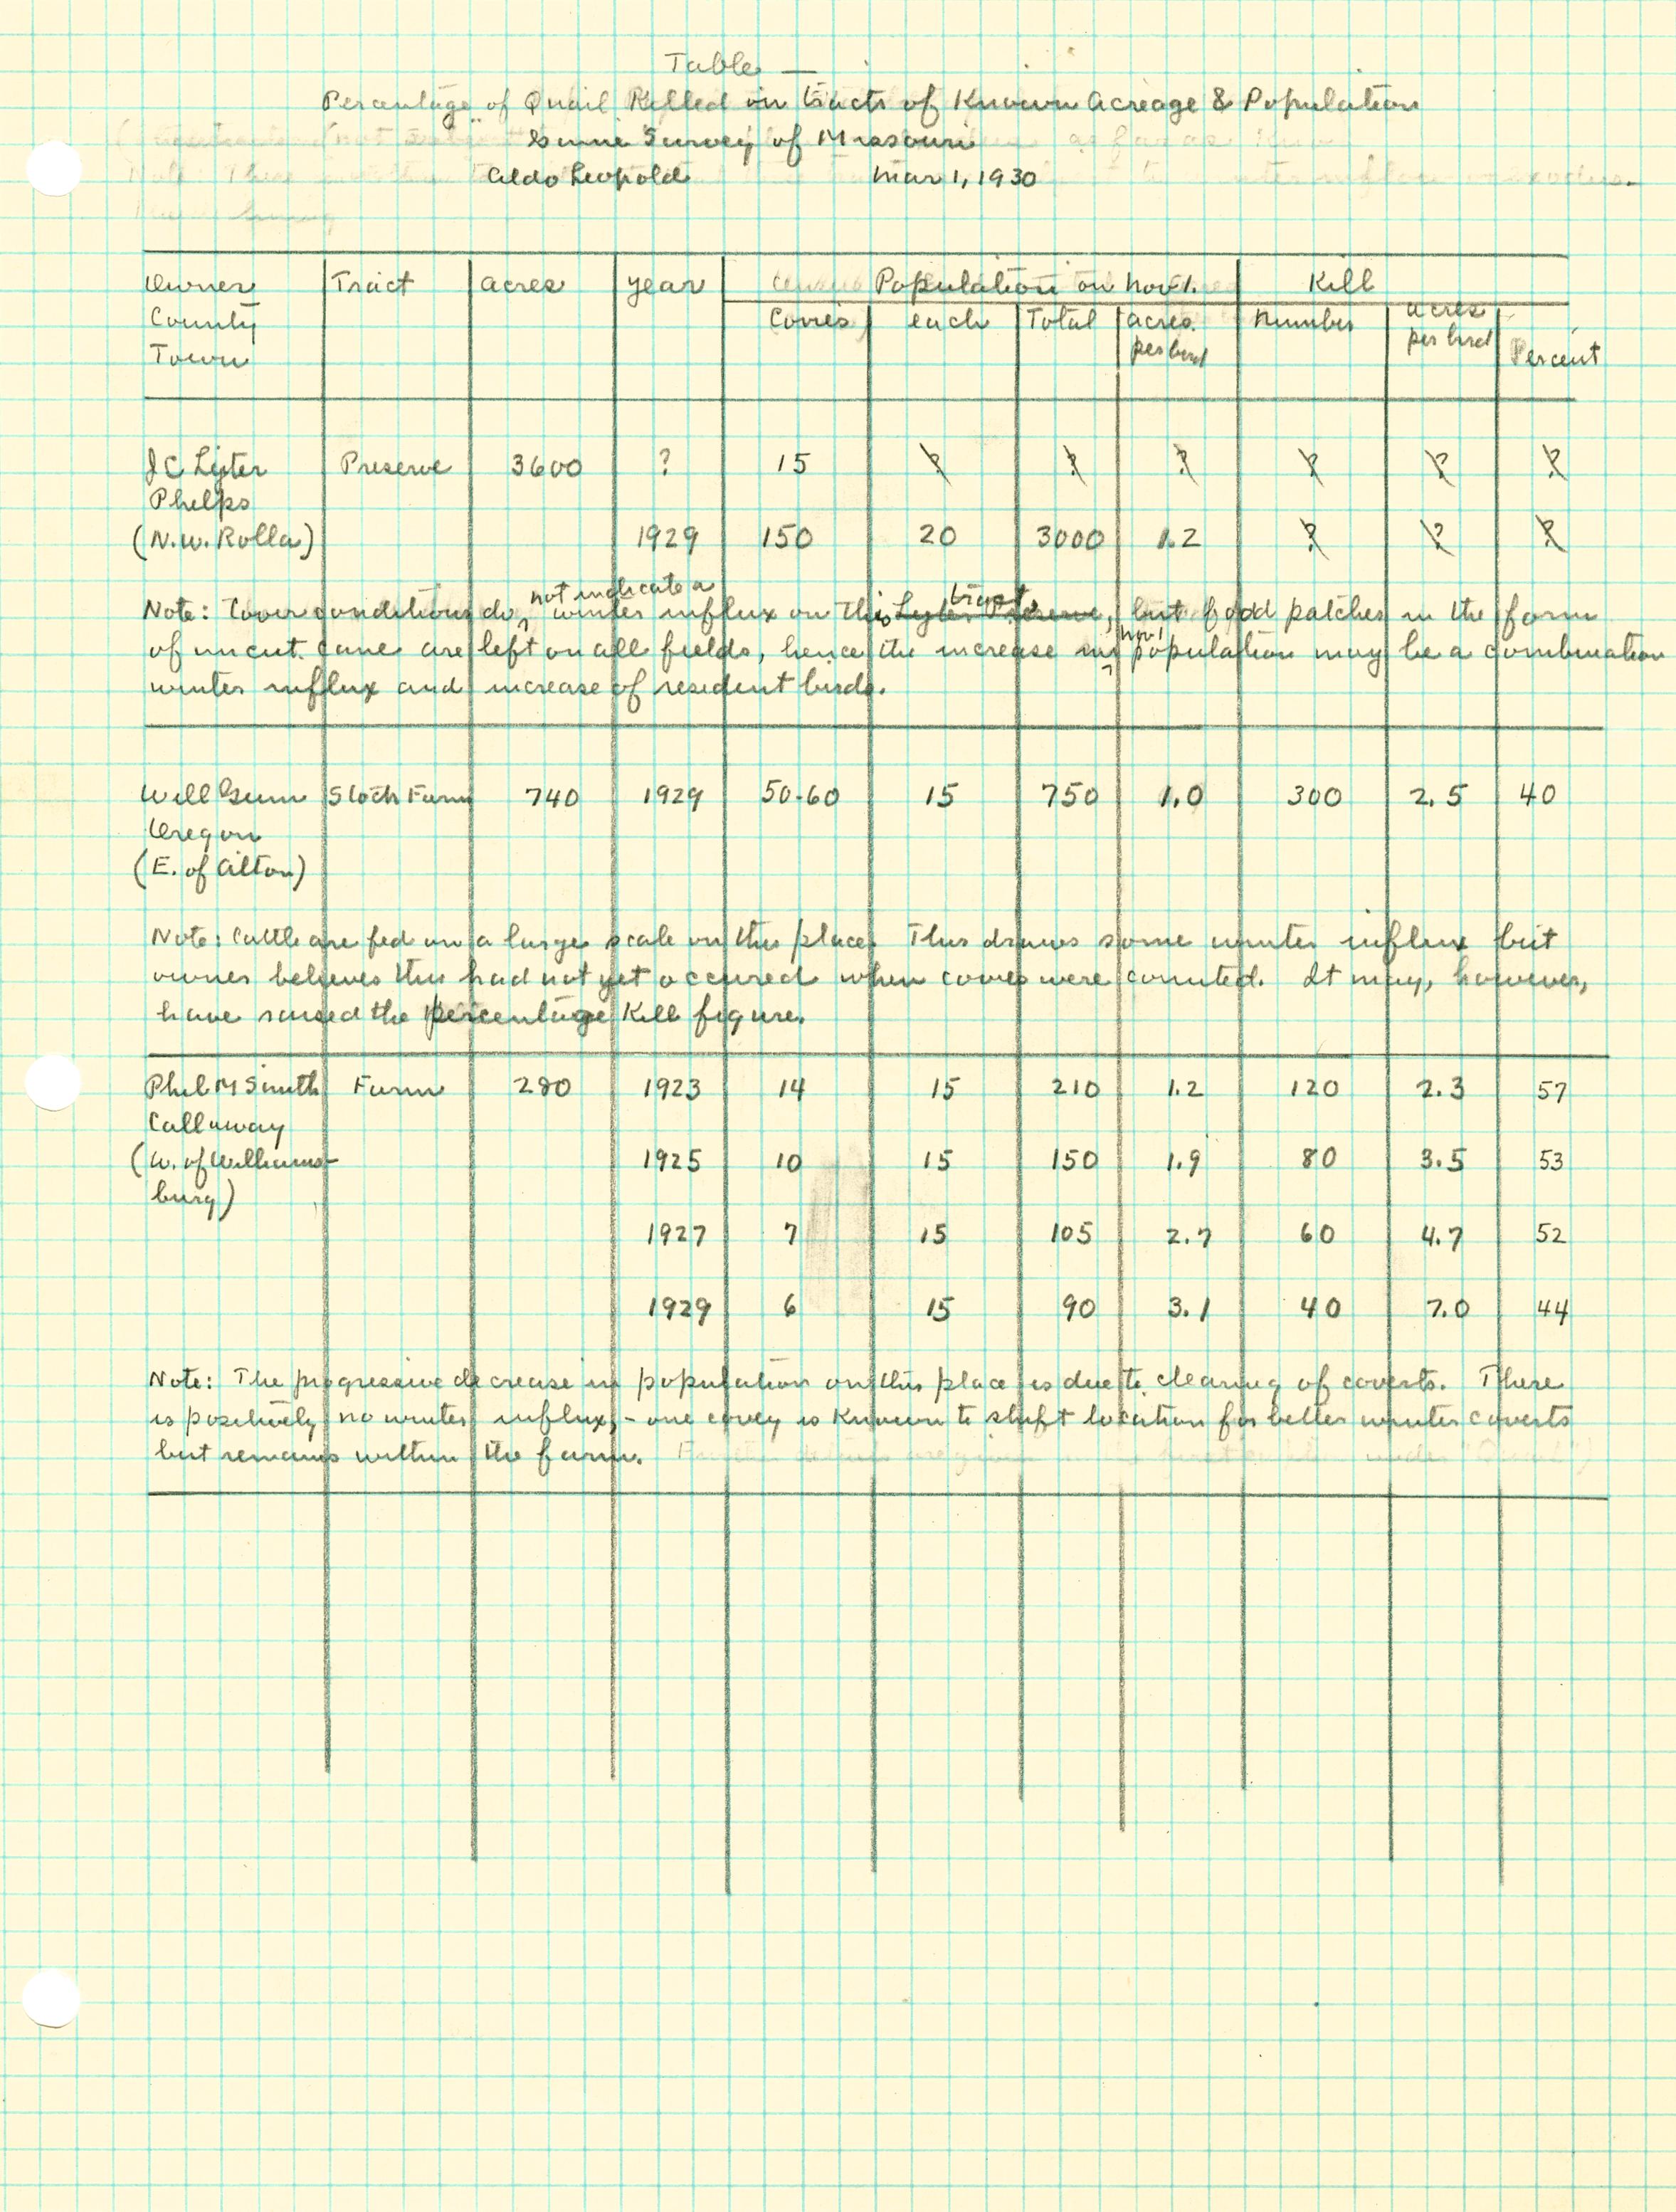 Table —
Percentage of Quail Killed on tracts of Known Acreage & Population
Game Survey of Missouri
Aldo Leopold Mar 1, 1930
Owner Tract acres year Population on Nov 1. Kill
County Covies each Total acres per bird Number acres per bird Percent
Town
J C Lyter Preserve 3600 ? 15 ? ? ? ? ? ?
Phelps
(N.W. Rolla) 1929 150 20 3000 1.2 ? ? ?
not indicate a tract
Note: Cover conditions do winter influx on this Lyter Preserve, but food patches in the form
Nov 1
of uncut cane are left on all fields, hence the increase in population may be a combination
winter influx and increase of resident birds.
Will Gum Stock Farm 740 1929 50-60 15 750 1.0 300 2.5 40
Oregon
(E. of Alton)
Note: Cattle are fed on a large scale on this place. This draws some winter influx but
owner believes this had not yet occured when covies were counted. It may, however,
have raised the percentage Kill figure.
Phil M Smith Farm 280 1923 14 15 210 1.2 120 2.3 57
Callaway
(W. of Williams- 1925 10 15 150 1.9 80 3.5 53
burg)
1927 7 15 105 2.7 60 4.7 52
1929 6 15 90 3.1 40 7.0 44
Note: The progressive decrease in population on this place is due to clearing of coverts. There
is positively no winter influx, - one covey is Known to shift location for better winter coverts
but remains within the farm.